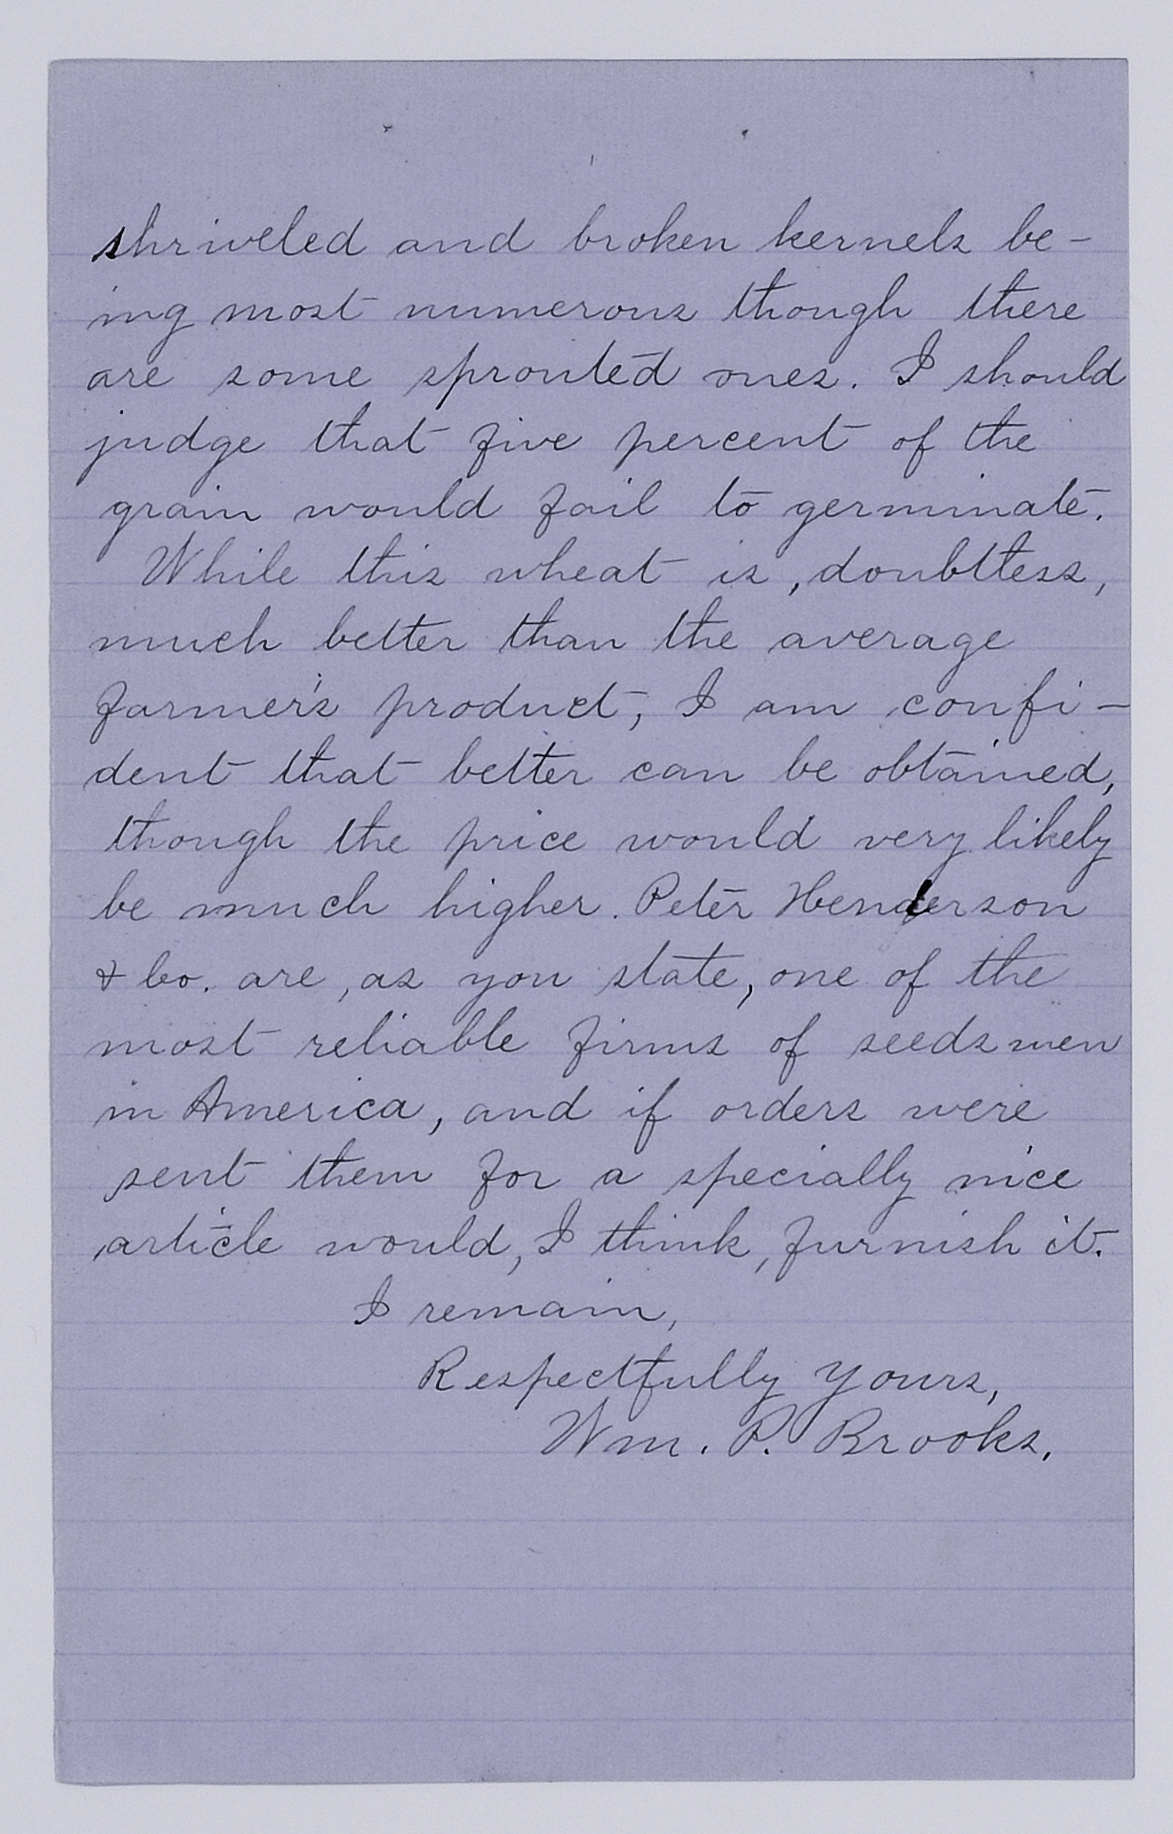 shriveled and broken kernels be-
ing most numerous though there
are some sprouted ones. I should
judge that five percent of the
grain would fail to germinate.
While this wheat is, doubttess,
much better than the average
farmer's product, I am confi-
dent that better can be obtained,
though the price would very likely
be much higher. Peter Henderson
& Co. are, as you state, one of the
most reliable firms of seedsmen
in America, and if orders were
sent them for a specially nice
article would, I think, furnish it.
I remain,
Respectfully yours,
Wm. P. Brooks.